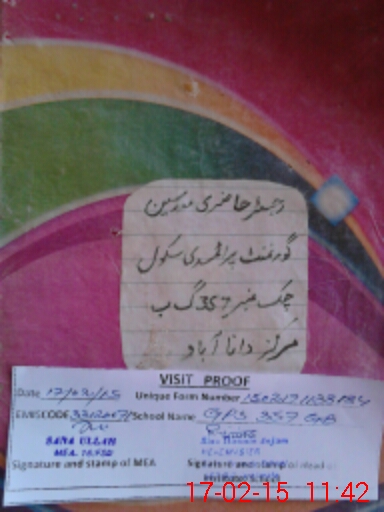 رجسٹر حاضری مدرسین
گورنمنٹ پرائمری سکول
چک نمبر 357 گ ب
مرکز دانا آباد
VISIT PROOF
Date 17/02/15 Unique Form Number
EMISCODE School Name GPS 357 GB
SANA ULLAH
MEA
Signature and stamp of MEA Signature and stamp of Head
17-02-15 11:42